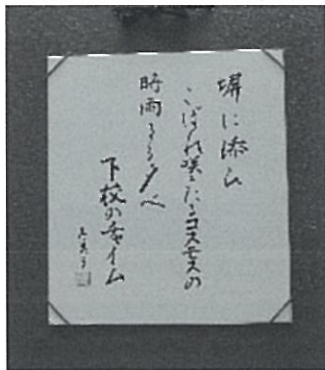 塀に添ひ
こぼれ咲きたるコスモスの
時雨るる夕べ
下校のチャイム